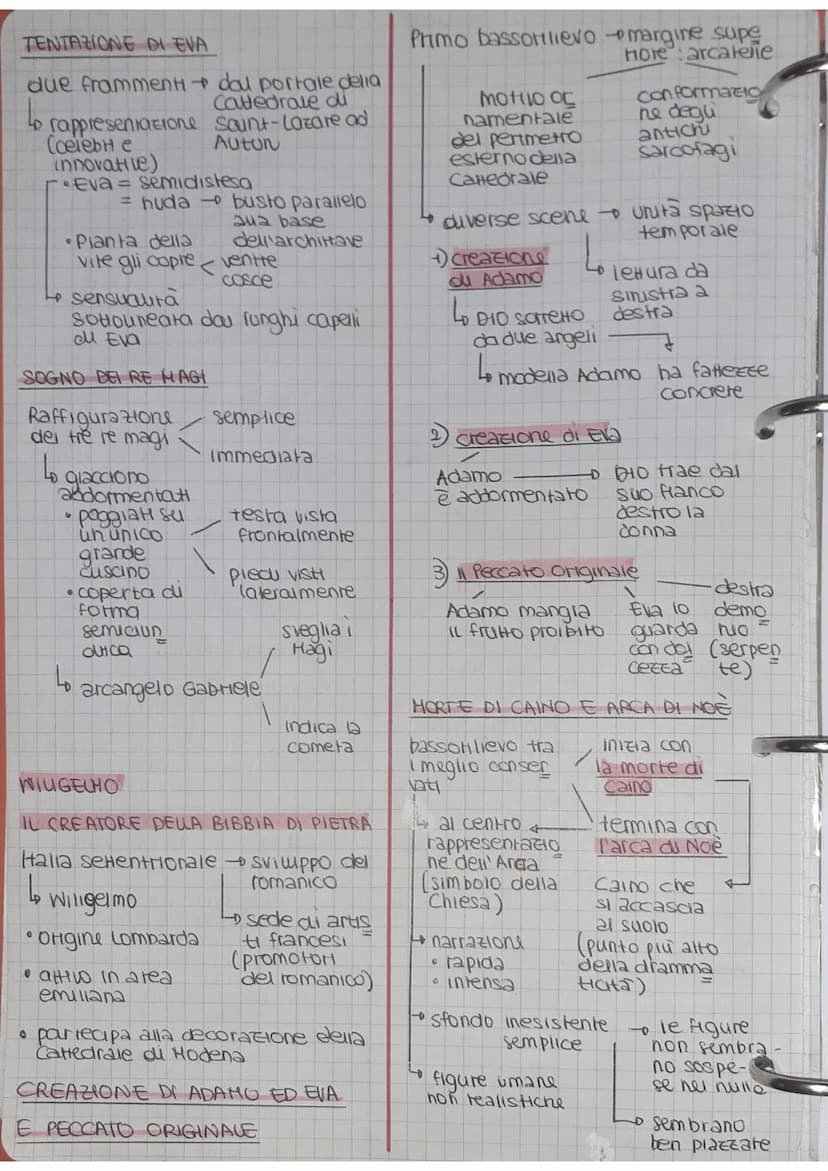 TENTAZIONE DI EVA
due frammenti → dal portale della
Cattedrale di
Saint-Lazare ad
Autun
↳ rappresentazione
(celebri e
innovative)
• Eva = semidistesa
= nuda → busto parallelo
alla base
dell'architrave
• Pianta della
vite gli copre < ventre
cosce
↳ sensualità
sottolineata dai lunghi capelli
di Eva
SOGNO DEI RE MAGI
Raffigurazione
dei tre re magi
semplice
immediata
↳ giacciono
addormentati
• poggiati su
un unico
grande
cuscino
testa vista
frontalmente
piedi visti
lateralmente
• coperta di
forma
semicilin
drica
↳ arcangelo Gabriele
sveglia i
Magi
indica la
cometa
WILIGELMO
IL CREATORE DELLA BIBBIA DI PIETRA
Italia settentrionale → sviluppo del
romanico
↳ Wiligelmo
↳ sede di artis
ti francesi
(promotori
del romanico)
• origine lombarda
• attivo in area
emiliana
• partecipa alla decorazione della
Cattedrale di Modena
CREAZIONE DI ADAMO ED EVA
E PECCATO ORIGINALE
Primo bassorilievo → margine supe
riore : arcatelle
motivo or
namentale
del perimetro
esterno della
Cattedrale
conformazio
ne degli
antichi
sarcofagi
↳ diverse scene → unità spazio
temporale
↳ lettura da
sinistra a
destra
1) creazione
di Adamo
↳ DIO sorretto
da due angeli
↳ modella Adamo ha fattezze
concrete
2) creazione di Eva
Adamo → DIO trae dal
è addormentato suo fianco
destro la
donna
3) Il Peccato Originale
Adamo mangia
il frutto proibito
Eva lo
guarda
con dol
cezza
destra
demo
nio
(serpen
te)
MORTE DI CAINO E ARCA DI NOÈ
bassorilievo tra
i meglio conser
vati
inizia con
la morte di
Caino
termina con
l'arca di Noè
↳ al centro
rappresentazio
ne dell'Arca
(simbolo della
Chiesa)
Caino che
si accascia
al suolo
(punto più alto
della dramma
ticità)
→ narrazione
• rapida
• intensa
→ sfondo inesistente
semplice
→ le figure
non sembra-
no sospe-
se nel nulla
↳ sembrano
ben piazzate
↳ figure umane
non realistiche